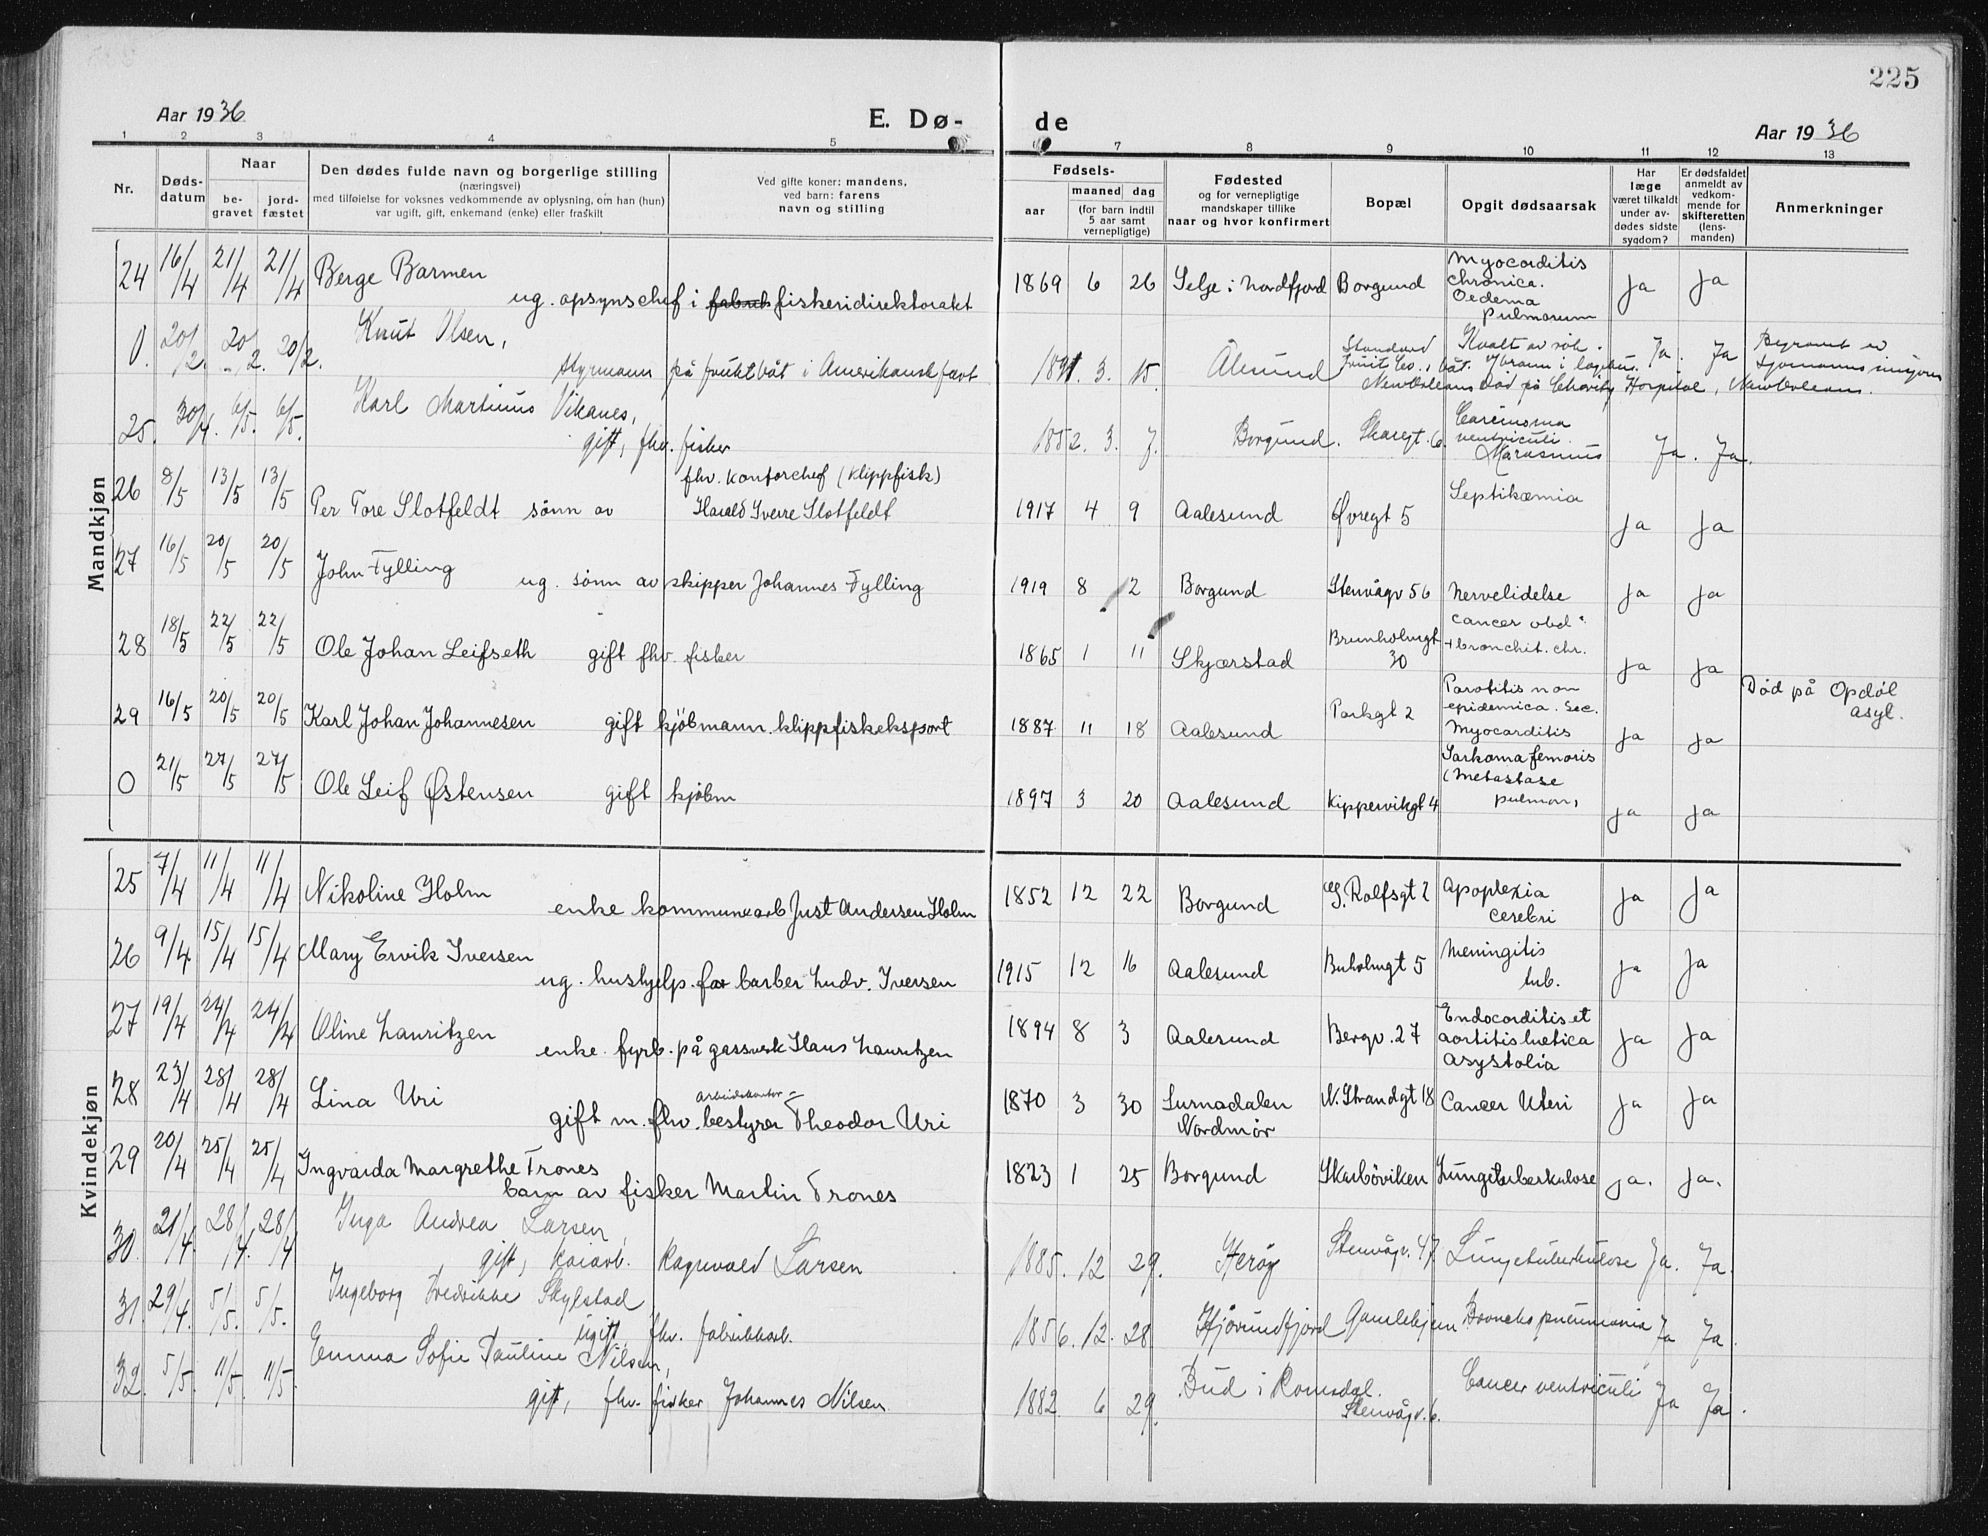 225
Aar 1936 E. Dø- de Aar 1936
1 2 3 4 5 7 8 9 10 11 12 13
Nr.
Døds-
datum
Naar
be-
gravet
jord-
fæstet
Den dødes fulde navn og borgerlige stilling
(næringsvei)
med tilføielse for voksnes vedkommende av oplysning, om han (hun)
var ugift, gift, enkemand (enke) eller fraskilt
Ved gifte koner: mandens,
ved barn: farens
navn og stilling
Fødsels-
aar
maaned dag
(for barn indtil
5 aar samt
vernepligtige)
Fødested
og for vernepligtige
mandskaper tillike
naar og hvor konfirmert
Bopæl
Opgit dødsaarsak
Har
læge
været tilkaldt
under av-
dødes sidste
sygdom?
Er dødsfaldet
anmeldt av
vedkom-
mende for
skifteretten
(lens-
manden)
Anmerkninger
Mandkjøn
24 16/4 21/4 21/4 Berge Barmen
ug. opsynschef i fiskeridirektoratet
1869 6 26 Selje i Nordfjord Borgund
Myocarditis
chronica.
Oedema
pulmorum
Ja Ja
0. 20/2. 20/2. 20/2. Knut Olsen,
styrmann på fruktbåt i Amerikansk fart
1891. 3. 15. Ålesund
Standard
Fruit Co., båt.
New Orleans
Kvalt av røk.
Ybrann i
Død på Charity Hospital, New Orleans.
Ja. Ja
25. 30/4. 6/5. 6/5. Karl Martinus Vikanes,
gift, fhv. fisker
1852. 3. 7. Borgund. Skaregt. 6.
Carcinoma
ventriculi.
Marasmus
Ja. Ja.
26 8/5 13/5 13/5 Per Tore Slotfeldt sønn av
fhv. kontorchef (klippfisk)
Harald Sverre Slotfeldt
1917 4 9 Aalesund Øvregt 5 Septikæmia Ja Ja
27 16/5 20/5 20/5 John Fylling
ug. sønn av skipper Johannes Fylling
1919 8 2 Borgund Stenvågv 56 Nervelidelse Ja Ja
28 18/5 22/5 22/5 Ole Johan Leifseth gift fhv. fisker
1865 1 11 Skjærstad Brunholmgt
30
cancer obd.
+ bronchit. chr.
Ja Ja
29 16/5 20/5 20/5 Karl Johan Johannesen gift kjöbmann. klippfiskeksport
1887 11 18 Aalesund Parkgt 2
Parotitis non
epidemica. Sec.
Myocarditis
Ja Ja
Död på Opdöl
asyl.
0 21/5 27/5 27/5 Ole Leif Østensen gift kjöbm
1897 3 20 Aalesund Kippervikgt 4
Sarkoma femoris
(Metastase
pulmon,
Ja Ja
Kvindekjøn
25 7/4 11/4 11/4 Nikoline Holm
enke kommunearb Just Andersen Holm
1852 12 22 Borgund G. Rolfsgt 2 Apoplexia
cerebri
Ja Ja
26 9/4 15/4 15/4 Mary Ervik Iversen
ug. hushjelp. far barber Ludv. Iversen
1915 12 16 Aalesund Buholmgt 5 Meningitis
tub.
Ja Ja
27 19/4 24/4 24/4 Oline Lauritzen
enke. fyrb. på gassverk Hans Lauritzen
1894 8 3 Aalesund Bergv. 27
Endocorditis et
aortitis luetica
asystolia
Ja Ja
28 23/4 28/4 28/4 Lina Uri
arbeidskontor
gift m. fhv. bestyrer Theodor Uri
1870 3 30 Surnadalen
Nordmør
N. Strandgt 18 Cancer Uteri Ja Ja
29 20/4 25/4 25/4 Ingvarda Margrethe Trones
barn av fisker Martin Trones
1823 1 25 Borgund Skarbøviken Lungetuberkulose Ja. Ja.
30. 21/4. 28/4. 28/4 Inga Andrea Larsen
gift, kaiarb. Ragnvald Larsen
1885. 12 29. Herøy Stenvågv. 47. Lungetuberkulose Ja. Ja.
31. 29/4. 5/5. 5/5. Ingeborg Fredrikke Skylstad
ugift, fhv. fabrikkarb.
1856. 12. 28 Hjørundfjord Gamlehjem Bronchopneumonia Ja Ja.
32. 5/5. 11/5. 11/5. Emma Sofie Pauline Nilsen,
gift, fhv. fisker Johannes Nilsen.
1882. 6 29. Bud i Romsdal.
Stenvågv. 6.
Cancer ventriculi Ja Ja.